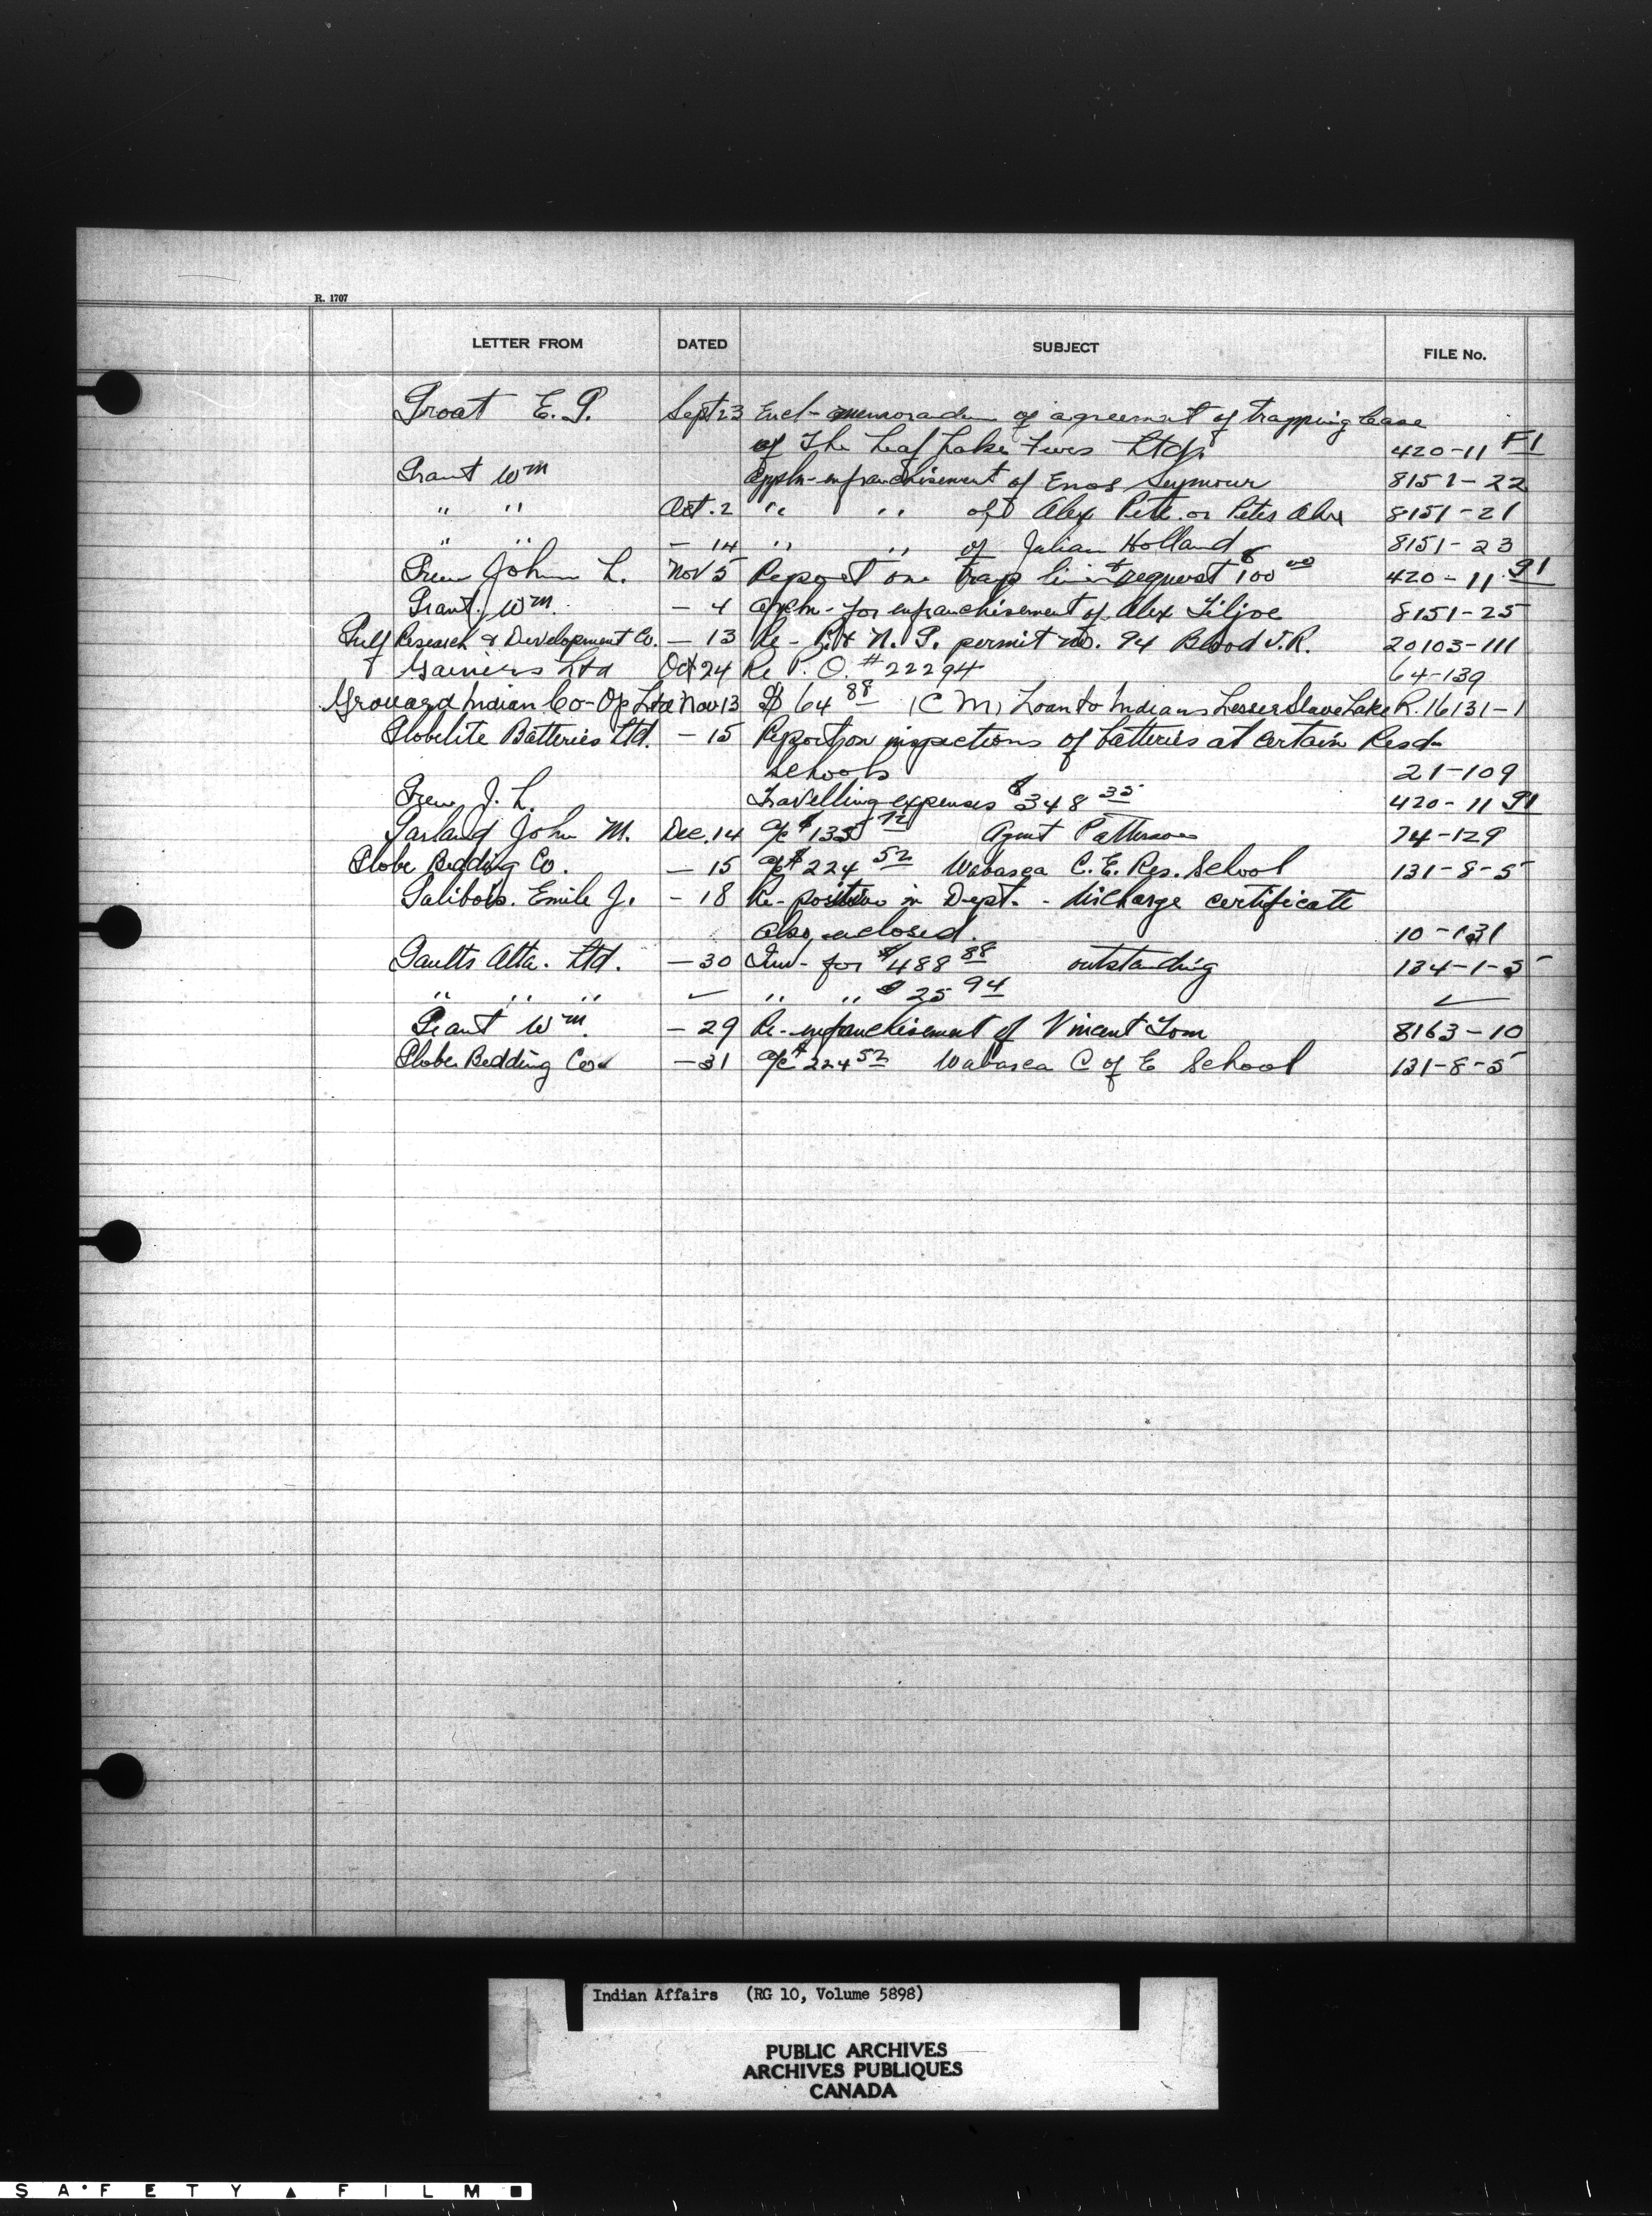 R. 1707
LETTER FROM DATED SUBJECT FILE No.
Groat E. G. Sept 23 Encl - memorandum of agreement of trapping lease
of The Leaf Lake Furs Ltd. 420-11 F1
Grant Wm Appln - enfranchisement of Enos Seymour 8151-22
" " Oct. 2 " " of Alex Pete or Peter 8151-21
" " - 14 " " of Julian Holland 8151-23
Grew John L. Nov 5 Report on trap line + request $100 00 420-11 G1
Grant Wm - 4 Appln - for enfranchisement of Alex Liljoe 8151-25
Gulf Research & Development Co. - 13 Re - P. & N. G. permit no. 94 Blood I.R. 20103-111
Gainers Ltd Oct 24 Re P. O. # 22294 64-139
Grouard Indian Co-Op Ltd Nov 13 $ 64 88 (C M) Loan to Indians Lesser Slave Lake R. 16131-1
Globelite Batteries Ltd. - 15 Report on inspections of batteries at certain Resd-
schools 21-109
Grew J. L. Travelling expenses $348 35 420-11 G1
Garland John M. Dec. 14 a/c $135 72 Agent Patterson 74-129
Globe Bedding Co. - 15 a/c $224 52 Wabasca C. E. Res. School 131-8-5
Galibois. Emile J. - 18 Re - position in Dept. - discharge certificate
also enclosed. 10-131
Gaults Alta. Ltd. - 30 Inv - for $488 88 outstanding 134-1-5
" " " ✓ " " $25 94 ✓
Grant Wm. - 29 Re - enfranchisement of Vincent Tom 8163-10
Globe Bedding Co. - 31 a/c $224 52 Wabasca C of E School 131-8-5
Indian Affairs (RG 10, Volume 5898)
PUBLIC ARCHIVES
ARCHIVES PUBLIQUES
CANADA
SAFETY ▲ FILM ■